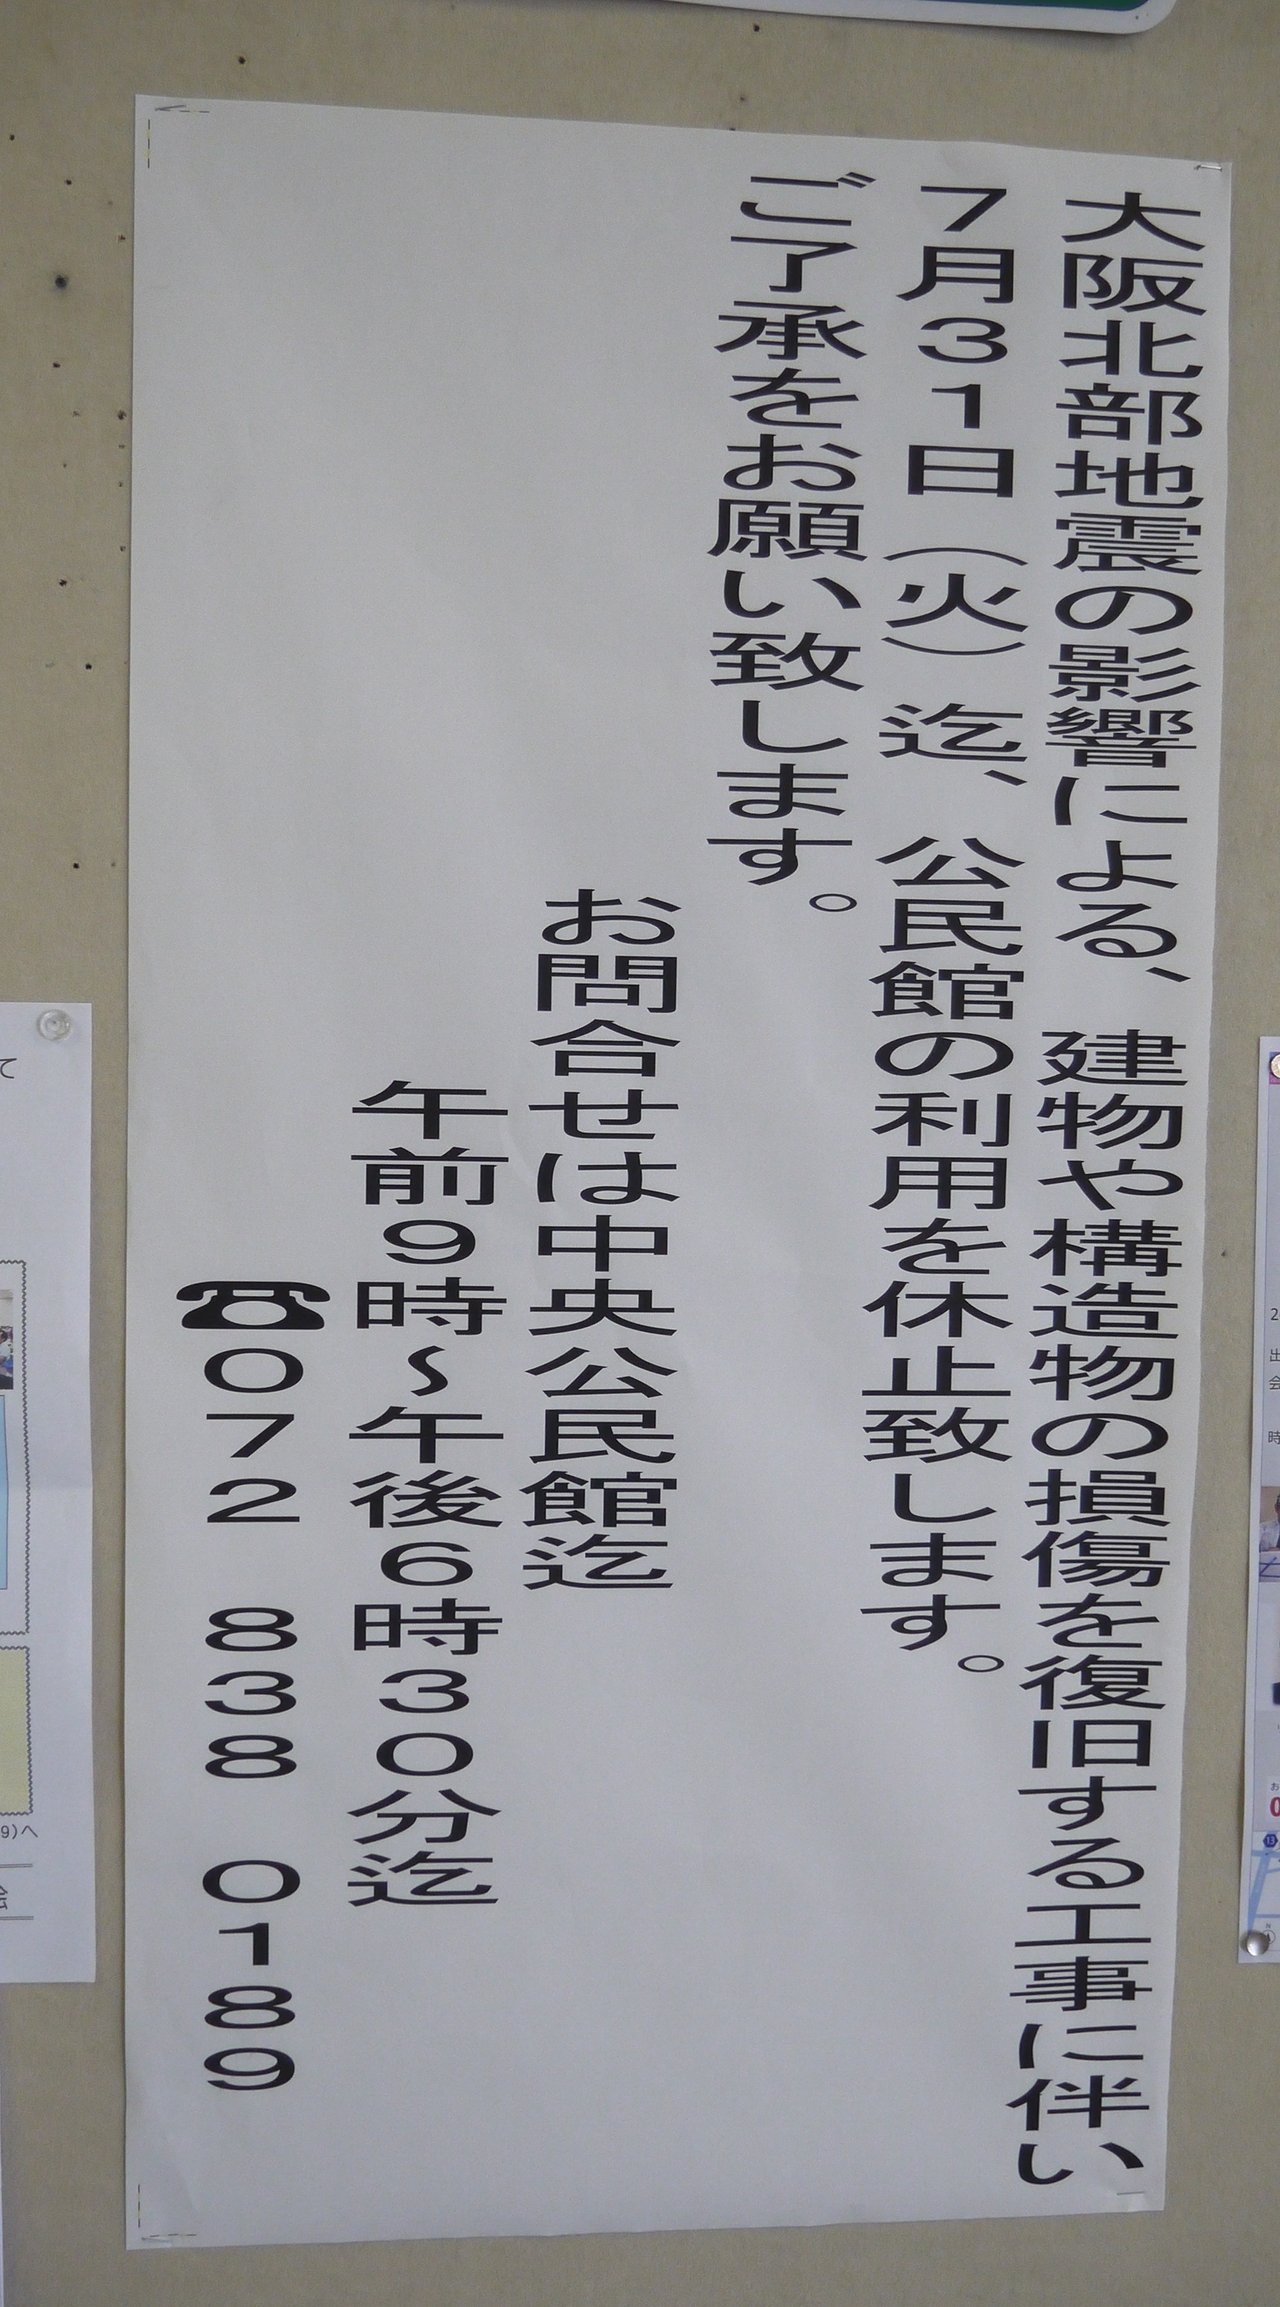 大阪北部地震の影響による、建物や構造物の損傷を復旧する工事に伴い
7月31日(火)迄、公民館の利用を休止致します。
ご了承をお願い致します。
お問合せは中央公民館迄
午前9時~午後6時30分迄
☎072 838 0189
て
9)へ
会
2
出
会
時
お
0
13
N